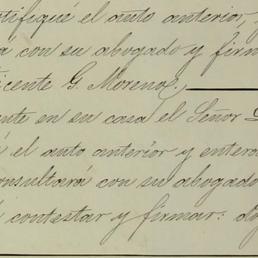 notifiqué el auto anterior,
con su abogado y firm
icente G. Moreno.
nte en su casa el Señor
el auto anterior y entera
onsultará con su abogado
contestar y firmar: doy